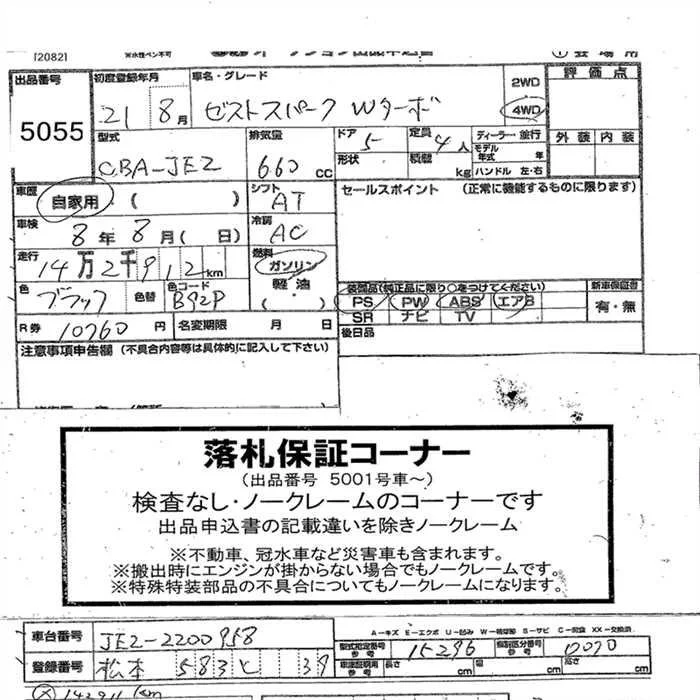 [2082]
出品番号 初度登録年月 車名・グレード 2WD 評価点
5055 21 8月 ゼストスパーク Wターボ 4WD
型式 排気量 ドア 5 定員 4人 ディーラー・並行 外装 内装
CBA-JE2 660cc 形状 積載 kg モデル年式 年 ハンドル 左・右
車歴 自家用・( ) シフト AT セールスポイント (正常に機能するものに限ります)
車検 8年8月( 日) 冷房 AC
走行 14万2千912km 燃料 ガソリン 軽油 ( )
色 ブラック 色替 色コード B92P
装備品(純正品に限り○をつけてください) 新車保証書
PS PW ABS エアB 有・無
SR ナビ TV
R券 10760円 名変期限 月 日 後日品
注意事項申告欄 (不具合内容等は具体的に記入して下さい)
落札保証コーナー
(出品番号 5001号車~)
検査なし・ノークレームのコーナーです
出品申込書の記載違いを除きノークレーム
※不動車、冠水車など災害車も含まれます。
※搬出時にエンジンが掛からない場合でもノークレームです。
※特殊特装部品の不具合についてもノークレームになります。
A-キズ E-エクボ U-凹み W-補修跡 S-サビ C-腐食 XX-交換済
車台番号 JE2-2200958 型式指定番号 参考 15296 類別区分番号 参考 0070
登録番号 松本 583 と 39 車庫証明用 参考 長さ cm 幅 cm 高さ cm